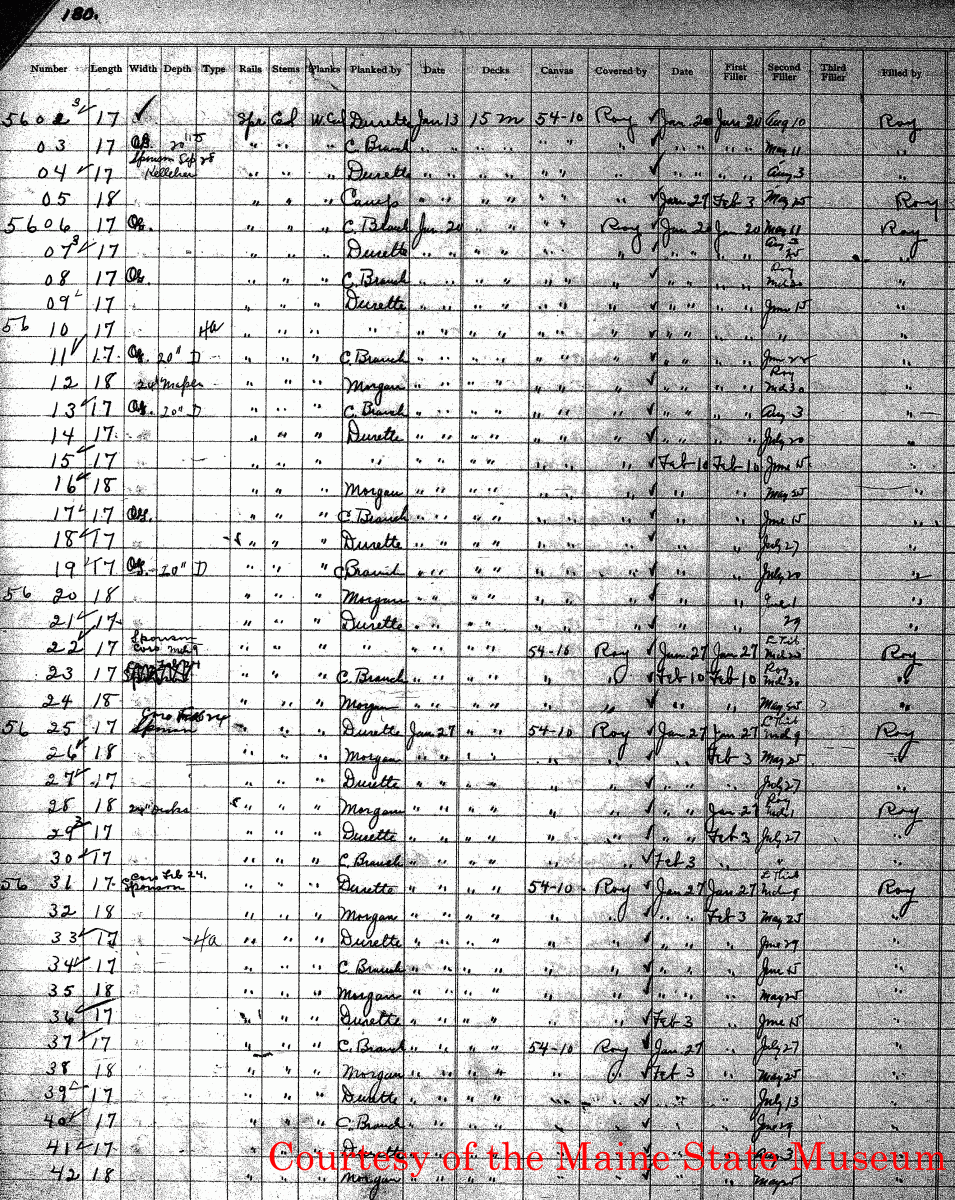 180.
Number Length Width Depth Type Rails Stems Planks Planked by Date Decks Canvas Covered by Date First Filler Second Filler Third Filler Filled by
5602 17 Spr. Ced W. Ced Durette Jan 13 15 M 54-10 Roy Jan 20 Jan 20 Aug 10 Roy
03 17 OG. 20" " " " C. Branch " " " " " " " " " " " " May 11 "
Sponson Sep 28
04 17 Kelleher " " " Durette " " " " " " " " " " " Aug 3 "
05 18 " " " Camp " " " " " " " Jan 27 Feb 3 May 25 Roy
5606 17 OG. " " " C. Branch Jan 20 " " " " Roy Jan 20 Jan 20 May 11 Roy
07 17 " " " Durette " " " " " " " " " " "
08 17 OG. " " " C. Branch " " " " " " " " " " " Roy Mch 30 "
09 17 " " " Durette " " " " " " " " " " " June 15 "
56 10 17 4a " " " " " " " " " " " " " " " " "
11 17 OG. 20" D " " " C. Branch " " " " " " " " " " " Jun 22 "
12 18 " " " Morgan " " " " " " " " " " " Roy Mch 30 "
13 17 OG. 20" D " " " C. Branch " " " " " " " " " " " Aug 3 "
14 17 " " " Durette " " " " " " " " " " " July 20 "
15 17 " " " " " " " " " " " Feb 10 Feb 10 June 15 "
16 18 " " " Morgan " " " " " " " " " " May 25 "
17 17 OG. " " " C. Branch " " " " " " " " " " June 15 "
18 17 " " " Durette " " " " " " " " " " July 27 "
19 17 OG. 20" D " " " C. Branch " " " " " " " " " " July 20 "
56 20 18 " " " Morgan " " " " " " " " " " "
21 17 " " " Durette " " " " " " " " " " 29 "
Sponson
22 17 Coro Mch 9 " " " " " " " " 54-10 Roy Jan 27 Jan 27 Mch 20 Roy
23 17 " " " C. Branch " " " " " " " Feb 10 Feb 10 Roy Mch 30 "
24 18 " " " Morgan " " " " " " " " " " May 25 "
Coro Feb 24
56 25 17 Sponson " " " Durette Jan 27 " " 54-10 Roy Jan 27 Jan 27 Mch 9 Roy
26 18 " " " Morgan " " " " " " " " " Feb 3 May 25 "
27 17 " " " Durette " " " " " " " " " " July 27 "
28 18 " " " Morgan " " " " " " " " " Jan 27 Roy Roy
29 17 " " " Durette " " " " " " " " " Feb 3 July 27 "
30 17 " " " C. Branch " " " " " " " Feb 3 " " "
Coro Feb 24.
56 31 17 Sponson " " " Durette " " " " 54-10 Roy Jan 27 Jan 27 Mch 9 Roy
32 18 " " " Morgan " " " " " " " " " Feb 3 May 25 "
33 17 4a " " " Durette " " " " " " " " " " June 29 "
34 17 " " " C. Branch " " " " " " " " " " June 15 "
35 18 " " " Morgan " " " " " " " " " " May 25 "
36 17 " " " Durette " " " " " " " Feb 3 " June 15 "
37 17 " " " C. Branch " " " " 54-10 Roy Jan 27 " July 27 "
38 18 " " " Morgan " " " " " " " Feb 3 " May 25 "
39 17 " " " Durette " " " " " " " " " " July 13 "
40 17 " " " C. Branch " " " " " " " " " " June 29 "
41 17 " " " Durette " " " " " " " " " " Aug 3 "
42 18 " " " Morgan " " " " " " " " " " May 25 "
Courtesy of the Maine State Museum